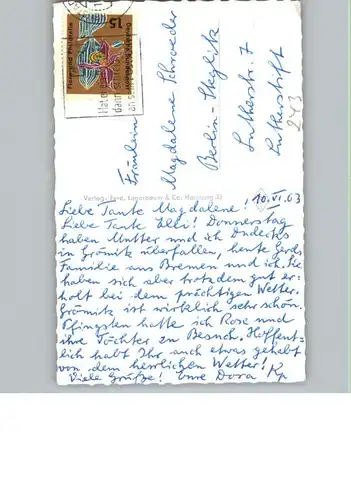 15
Fräulein
Magdalene Schroeder
Berlin-Steglitz
Lutherstr. 7
Lukasstift
243
Verlag: Ferd. Lagerbauer & Co. Hamburg
10. VI. 63
Liebe Tante Magdalene!
Liebe Tante Elli! Donnerstag
haben Mutter und ich
in Grömitz überfallen, heute Gerds
Familie aus Bremen und ich. Sie
haben sich aber trotzdem gut er-
holt bei dem prächtigen Wetter.
Grömitz ist wirklich sehr schön.
Pfingsten hatte ich Rose und
ihre Töchter zu Besuch. Hoffent-
lich habt Ihr auch etwas gehabt
von dem herrlichen Wetter!
Viele Grüße! Eure Dora